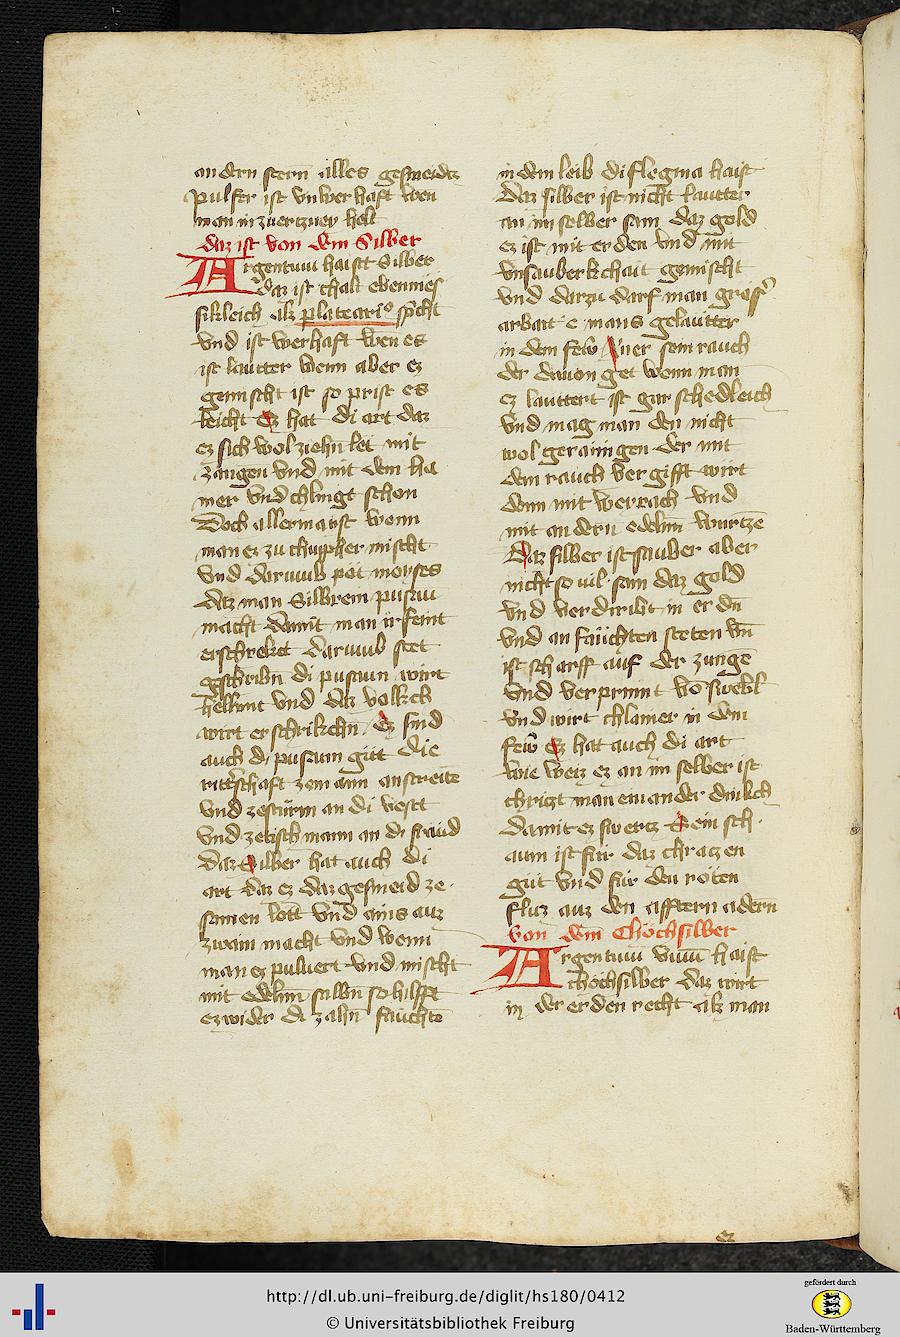 andern stern alles gesmeidz
pulfer ist vnwerhaft wen
man in zuertzney helt
daz ist von dem Silber
Argentum haistt Silber
daz ist chalt ebenmes
sikleich alz platearius spcht
vnd ist werhaft wen es
ist lautter wenn aber ez
gemischt ist so prist es
leicht Ez hat di art daz
ez sich wol ziehn let mit
zangen vnd mit dem ha
mer vnd chlingt schon
Doch allermayst wenn
man ez zu chuppher mischt
vnd darumb pot moyses
daz man Silbrein pusaun
macht damit man ir feint
erschreket darumb stet
geschribn di pusaun wirt
hellunt vnd daz volkch
wirt erschrikchn Ez sind
auch di pusaun gut die
rittschaft zem ann anstreite
vnd zesturm an di vestt
vnd zetisch mann an di fraud
daz Silber hat auch di
art daz ez daz gesmeid ze
samen lott vnd ains auz
zwain macht vnd wenn
man ez puluert vnd mischt
mit edelnn salbn so hilfft
ez wider di zahn fauchte
in dem leib di flegma haist
Daz silber ist nicht lautter
an im selber sam daz gold
ez ist mit erden vnd mit
vnsauberkchait gemischt
vnd darzu darf man gross
arbait e mans gelautter
in dem few Ainer sein rauch
der dauon get wenn man
ez lauttert ist gar schedleich
vnd mag man den nicht
wol geraingen der mit
dem rauch vergifft wirt
denn mit weyrach vnd
mit andern edelnn wurtze
Daz silber ist sauber aber
nicht so vil sam daz gold
vnd verdirbt in er dn
vnd an faüchten steten vn
ist scharff auf der zunge
vnd verprinnt vo swebl
vnd wirt chlainer in dem
few Ez hat auch di art
wie weiz ez an im selber ist
chrizt man ein ander dinkch
damit ez swertz Sein sch
aum ist fur daz chraczen
gut vnd fur den roten
fluz auz den afftern adern
von dem Chochsilber
Argentum viuum haist
chochsilber daz wirt
in der erden recht alz man
ez
http://dl.ub.uni-freiburg.de/diglit/hs180/0412
© Universitätsbibliothek Freiburg
gefördert durch
Baden-Württemberg